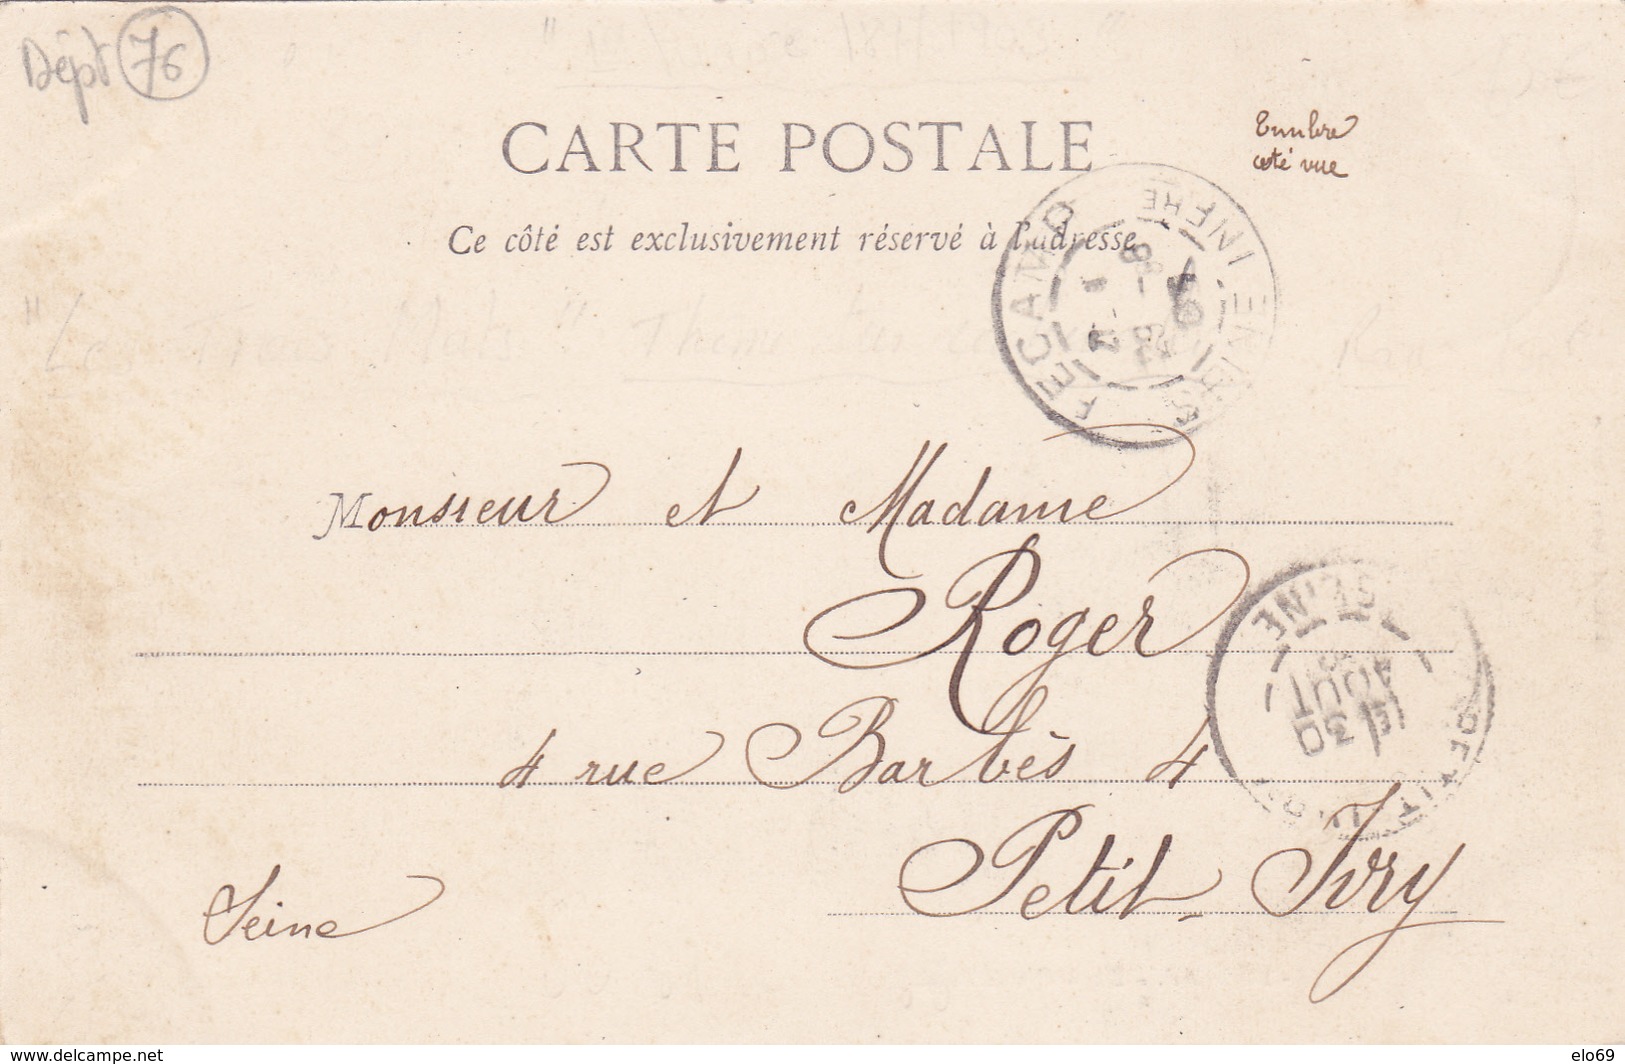 Dépt 76
CARTE POSTALE
Timbre
côté vue
Ce côté est exclusivement réservé à l'adresse
FECAMP
SEINE INFERE
Monsieur et Madame
Roger
4 rue Barbès 4
SEINE
30
AOUT
Petit-Ivry
Seine
https://www.delcampe.net
elo69